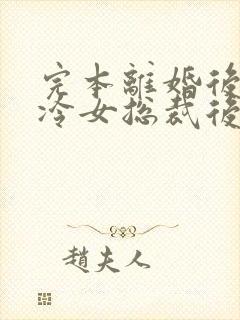 完本離婚後
冷女总裁後
趙夫人